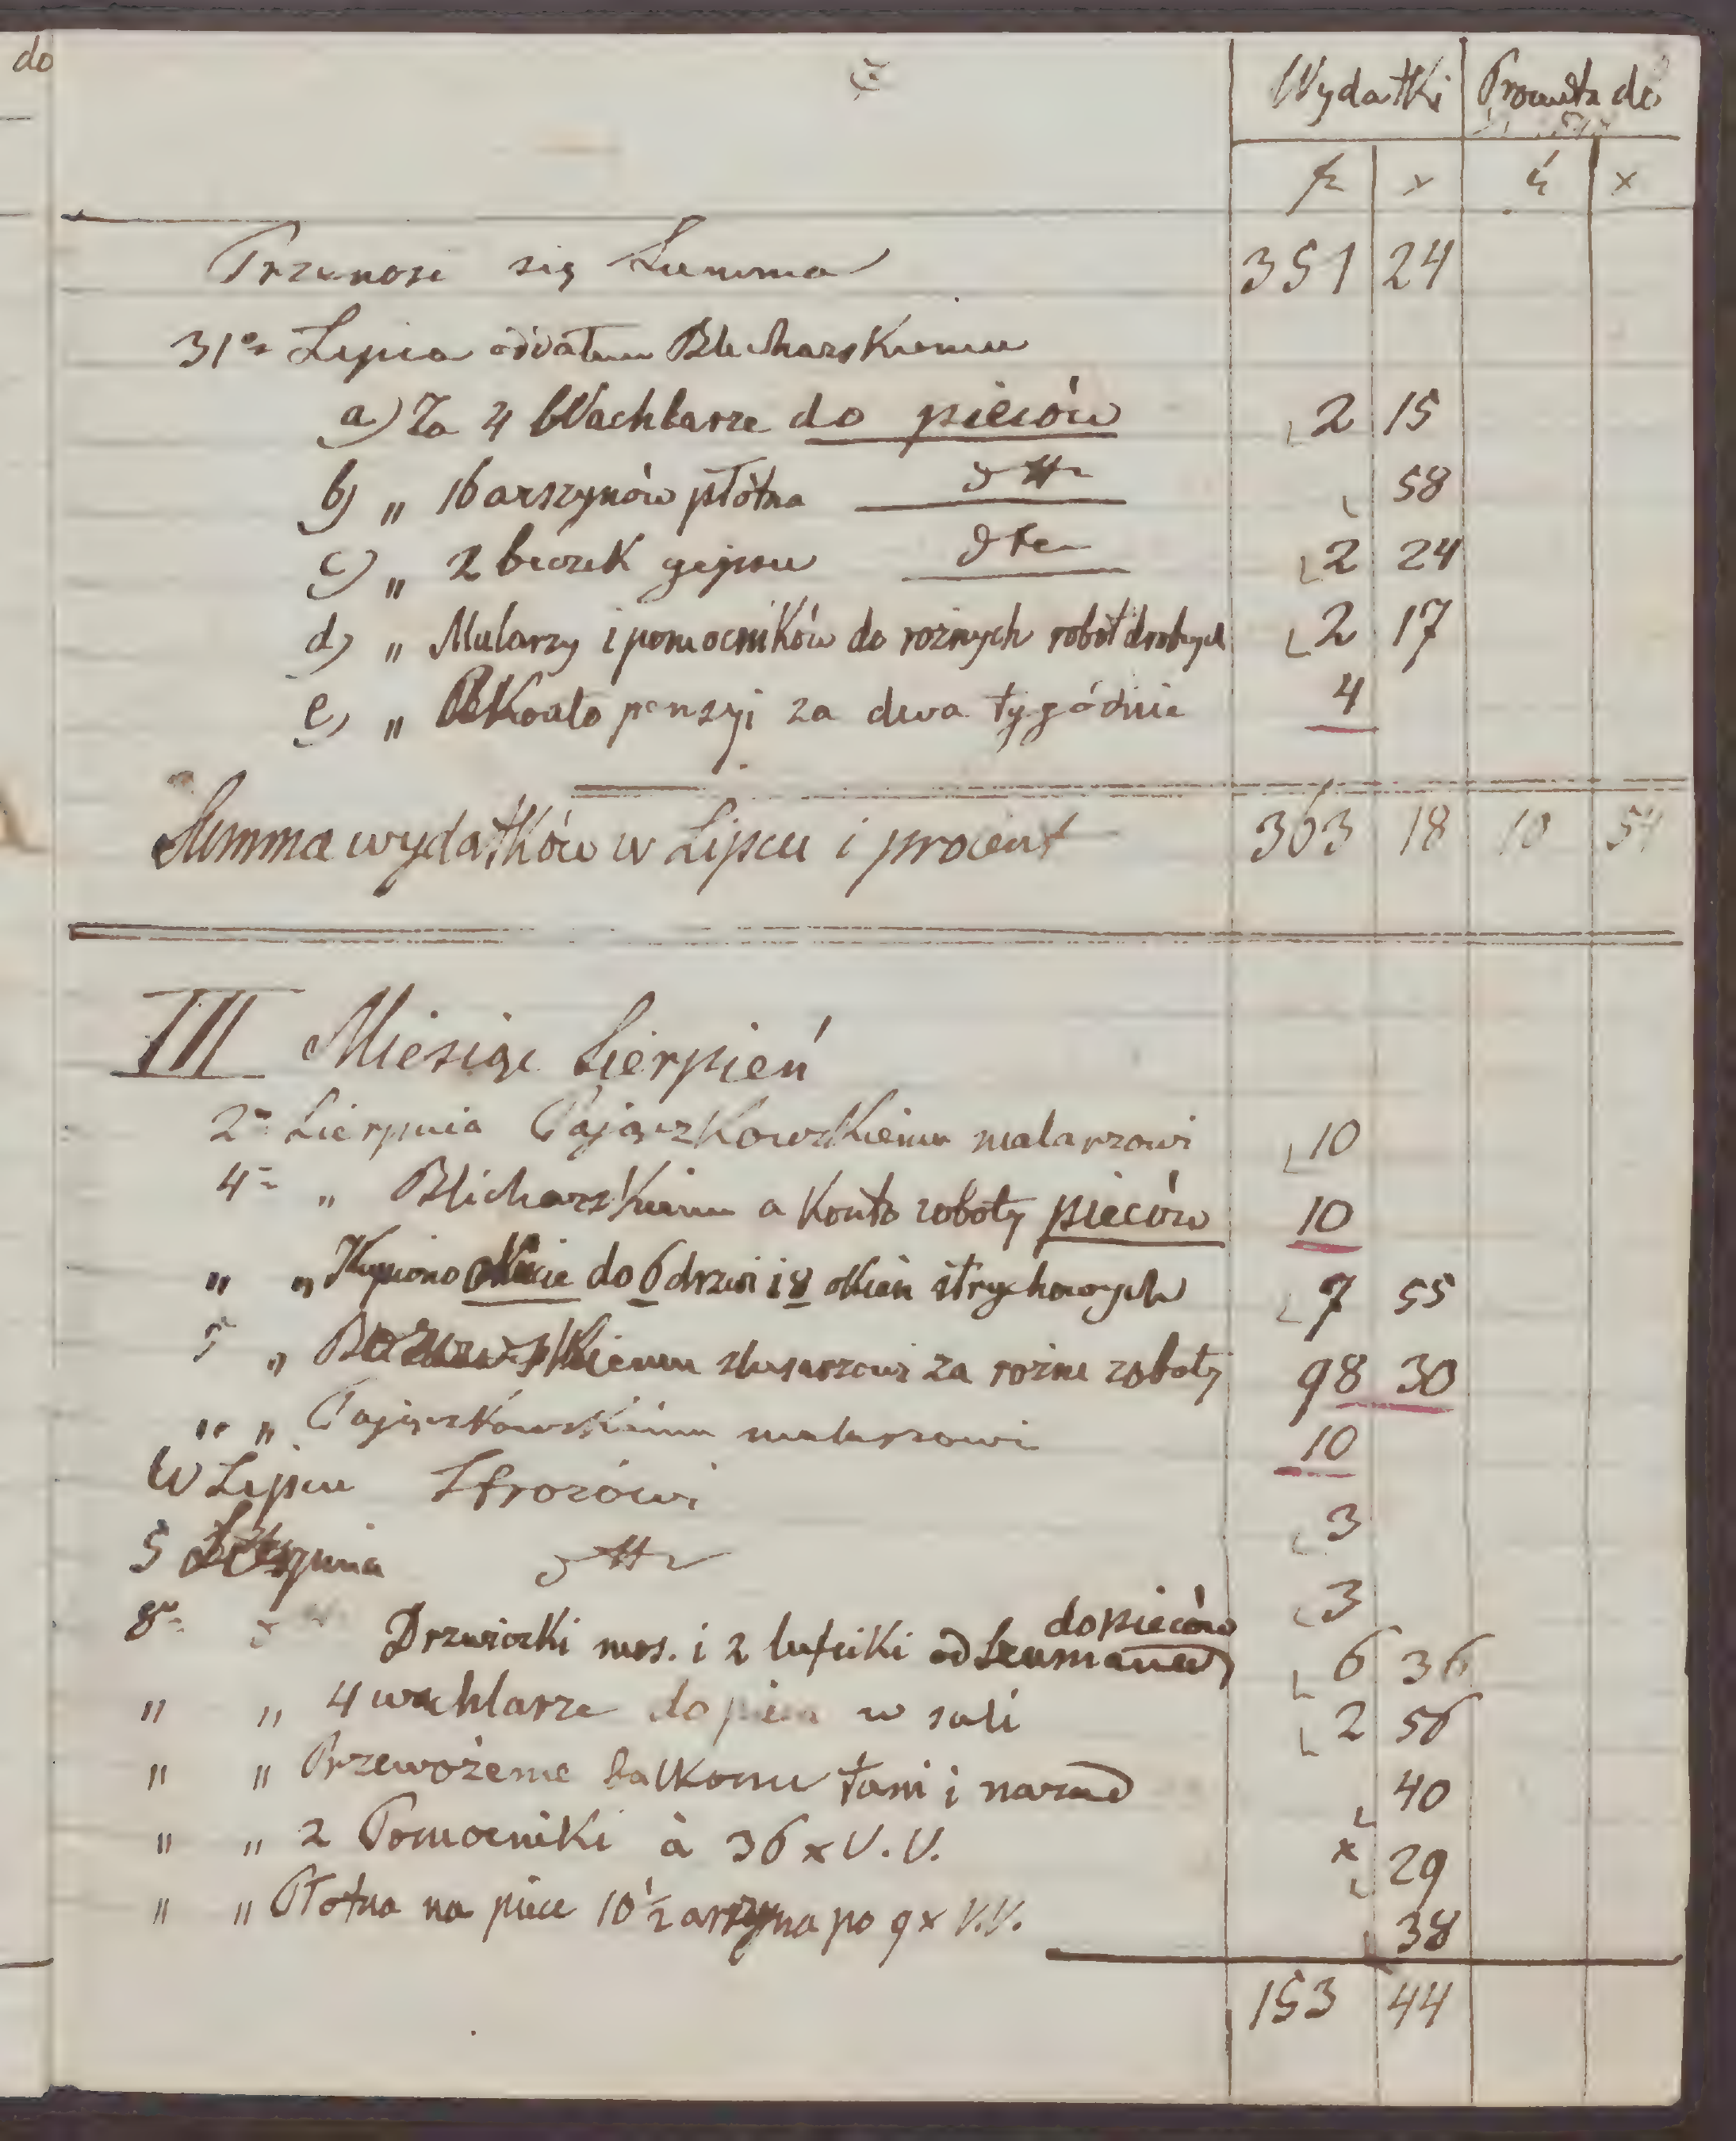 do
Wydatki
Procenta do
fr x ń x
Przenosi się Summa 351 24
31º Lipca oddałem Blicharskiemu
a) Za 4 Wachlarze do pieców 2 15
b) " 16 arszynów płótna dtto 58
c) " 2 beczek gipsu dto 2 24
d) " Mularzy i pomocników do rożnych robot drobnych 2 17
e) " a Konto pensyi za dwa tygódnie 4
Summa wydatków w Lipcu i procent 363 18 10 54
III Miesiąc Sierpień
2 Sierpnia Pajączkowskiemu malarzowi 10
4 " Blicharskiemu a Konto roboty pieców 10
" " Kupiono okucie do 6 drzwi i 8 okien strychowych 7 55
5 " slusarzowi za rożne roboty 98 30
" " Pajączkowskiemu malarzowi 10
W Lipcu Strozówi 3
5 Sierpnia dtto 3
do pieców
8 Drzwiczki mos. i 2 lufciki od 6 36
" " 4 wachlarze do pieca w sali 2 56
" " Przewożenie balkonu tam i nazad 40
" " 2 Pomocniki à 36 x V. V. x 29
" " Płotna na piece 10 1/2 arszyna po 9 x V.V. 38
153 44